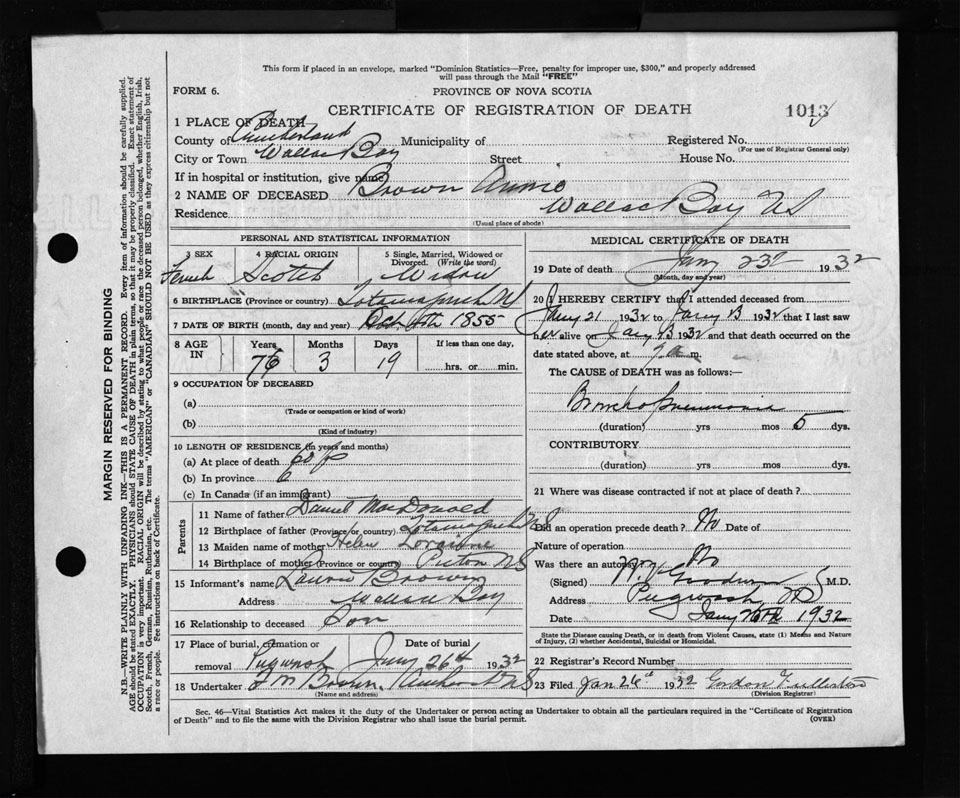 This form if placed in an envelope, marked "Dominion Statistics—Free, penalty for improper use, $300," and properly addressed
will pass through the Mail "FREE"
FORM 6.
PROVINCE OF NOVA SCOTIA
CERTIFICATE OF REGISTRATION OF DEATH
1013
1 PLACE OF DEATH
County of Cumberland Municipality of Registered No.
(For use of Registrar General only)
City or Town Wallace Bay Street House No.
If in hospital or institution, give name
2 NAME OF DECEASED Brown Annie
Residence Wallace Bay NS
(Usual place of abode)
PERSONAL AND STATISTICAL INFORMATION
3 SEX 4 RACIAL ORIGIN 5 Single, Married, Widowed or
Divorced. (Write the word)
Female Scotch Widow
6 BIRTHPLACE (Province or country) Tatamagouche NS
7 DATE OF BIRTH (month, day and year) Oct 4th 1855
8 AGE IN Years Months Days If less than one day,
76 3 19 hrs. or min.
9 OCCUPATION OF DECEASED
(a)
(Trade or occupation or kind of work)
(b)
(Kind of industry)
10 LENGTH OF RESIDENCE (in years and months)
(a) At place of death
(b) In province
(c) In Canada (if an immigrant)
Parents
11 Name of father Daniel MacDonald
12 Birthplace of father (Province or country) Tatamagouche NS
13 Maiden name of mother Helen
14 Birthplace of mother (Province or country) Picton NS
15 Informant's name Brown
Address Wallace Bay
16 Relationship to deceased Son
17 Place of burial, cremation or removal Date of burial
Pugwash Jany 26th 1932
18 Undertaker F M Brown NS
(Name and address)
MEDICAL CERTIFICATE OF DEATH
19 Date of death Jany 23 1932
(Month, day and year)
20 I HEREBY CERTIFY that I attended deceased from
Jany 21 1932 to Jany 23 1932 that I last saw
her alive on Jany 23 1932 and that death occurred on the
date stated above, at 7 a m.
The CAUSE of DEATH was as follows:—
Broncho pneumonia
(duration) yrs mos 5 dys.
CONTRIBUTORY
(duration) yrs mos dys.
21 Where was disease contracted if not at place of death?
Did an operation precede death? No Date of
Nature of operation
Was there an autopsy No
(Signed) Goodwin M.D.
Address Pugwash NS
Date Jany 1932
State the Disease causing Death, or in death from Violent Causes, state (1) Means and Nature
of Injury, (2) whether Accidental, Suicidal or Homicidal.
22 Registrar's Record Number
23 Filed Jan 26th 1932 Gordon Fullerton
(Division Registrar)
Sec. 46—Vital Statistics Act makes it the duty of the Undertaker or person acting as Undertaker to obtain all the particulars required in the "Certificate of Registration
of Death" and to file the same with the Division Registrar who shall issue the burial permit.
(OVER)
MARGIN RESERVED FOR BINDING
N.B.—WRITE PLAINLY WITH UNFADING INK—THIS IS A PERMANENT RECORD. Every item of information should be carefully supplied.
AGE should be stated EXACTLY. PHYSICIANS should STATE CAUSE OF DEATH in plain terms, so that it may be properly classified. Exact statement of
OCCUPATION is very important. RACIAL ORIGIN will be described by stating to what people or race the deceased person belonged, whether English, Irish,
Scotch, French, German, Russian, Ruthenian, etc. The terms "AMERICAN" or "CANADIAN" SHOULD NOT BE USED as they express citizenship but not
a race or people. See instructions on back of Certificate.